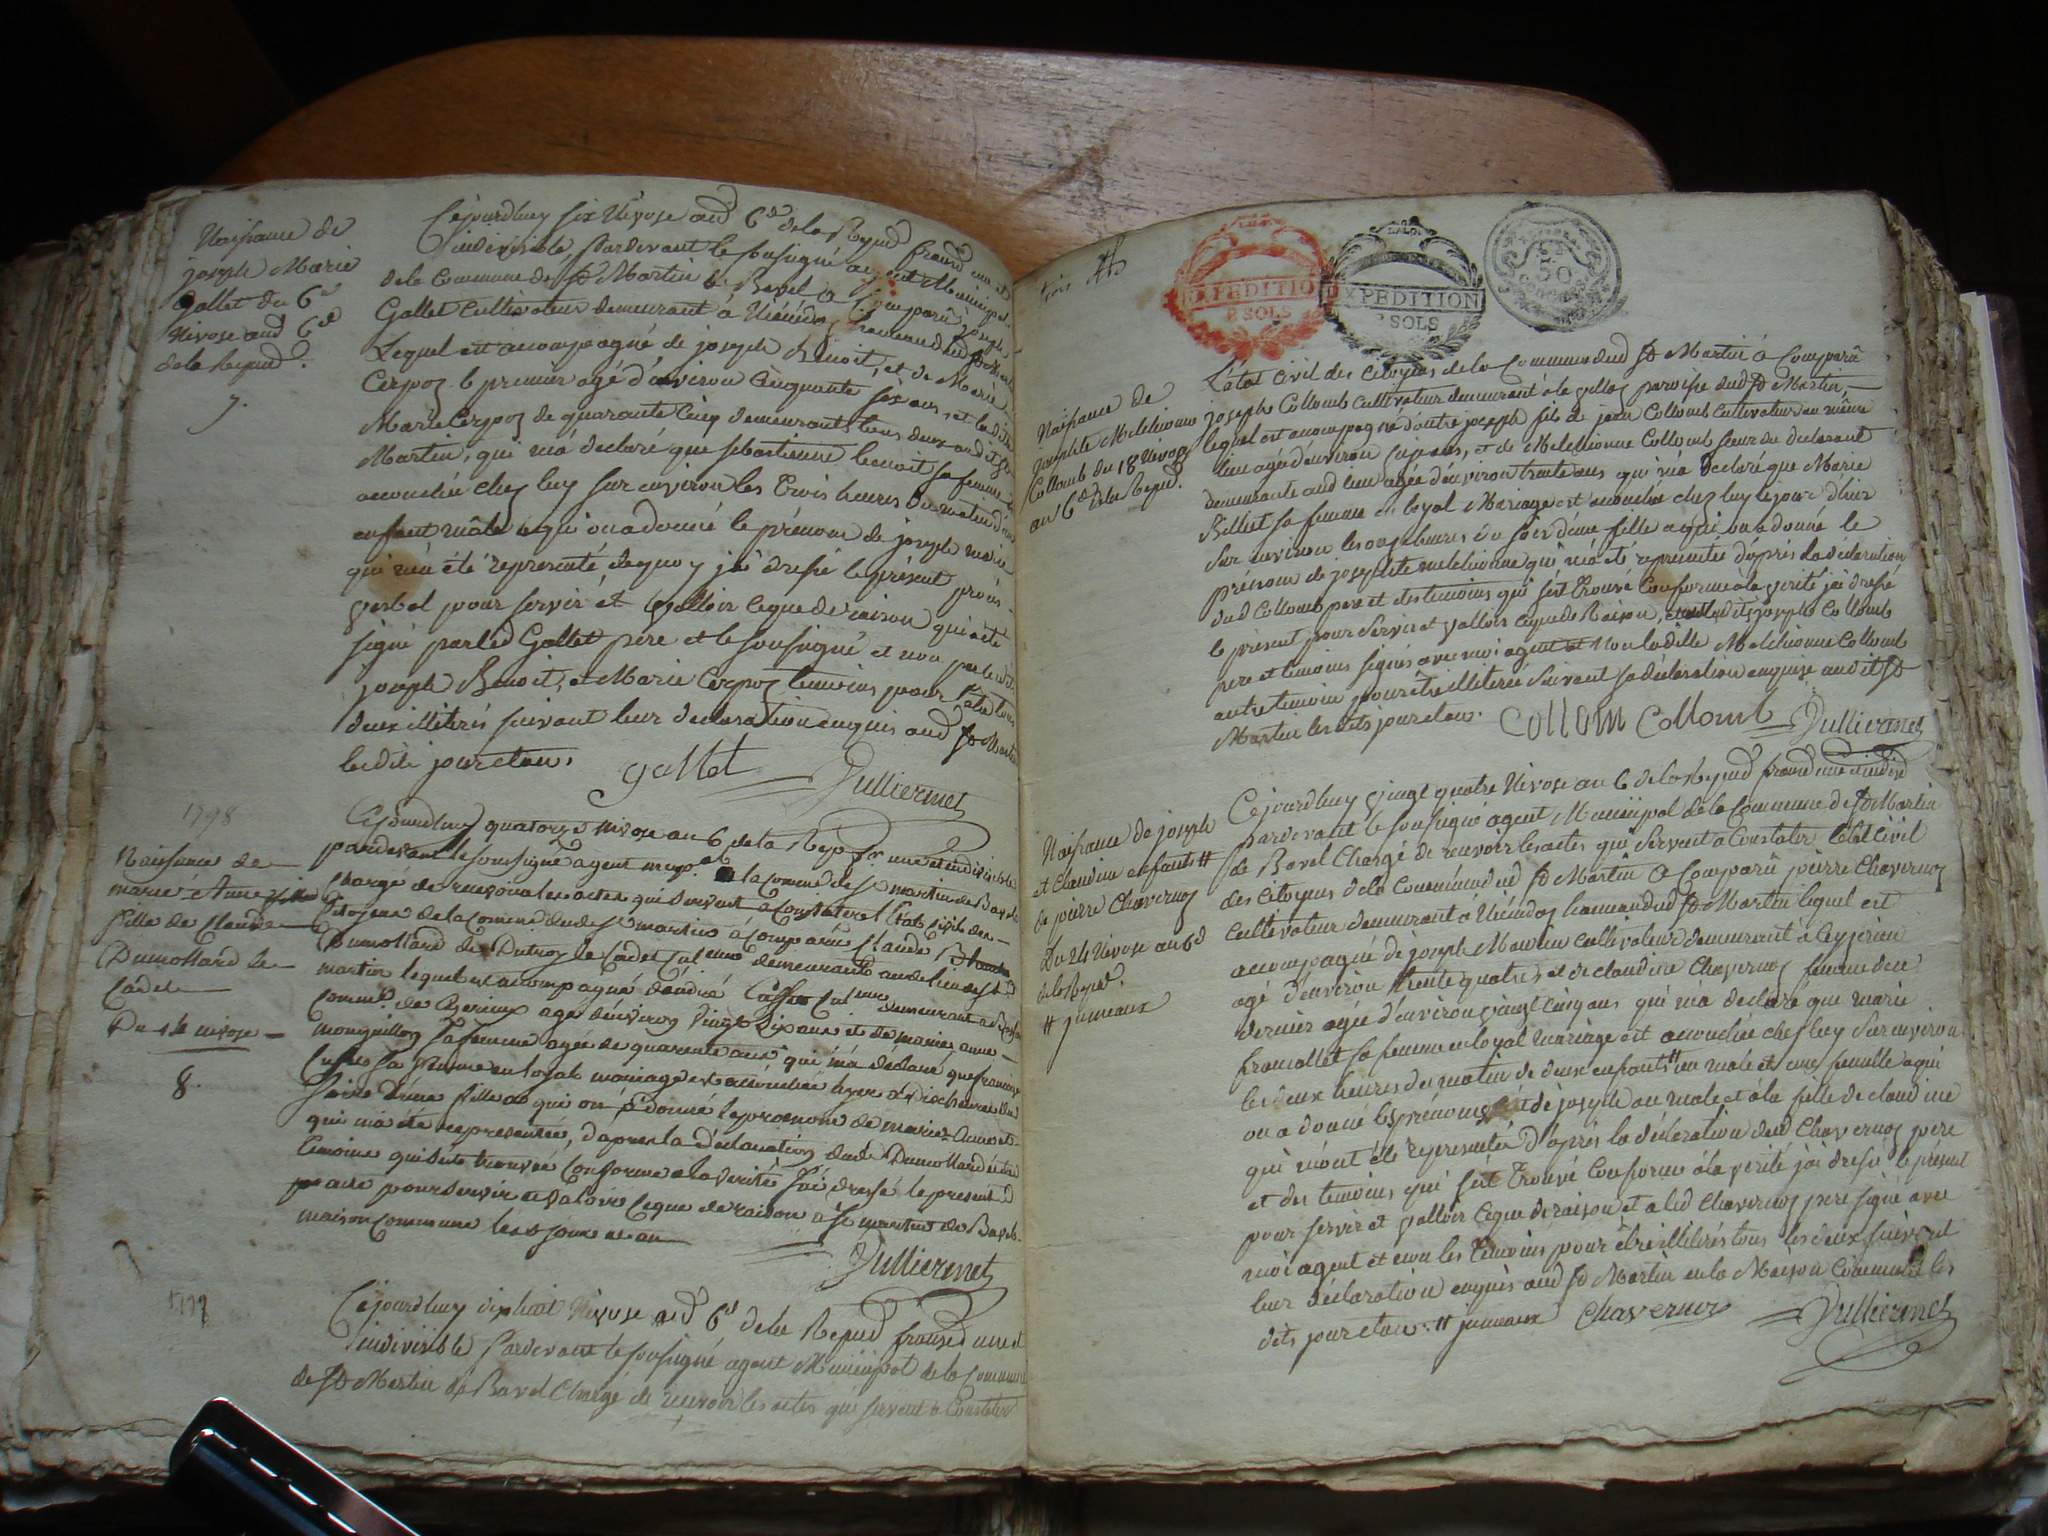 Naissance de
joseph Marie
Gallet du 6
Nivose and 6
de la Repud.
7.
Cejourdhuy six Nivose and 6 de la Repud
indivisible, Pardevant le soussigné agent Municipal
de la Commune de St Martin de Bavel a Comparû joseph
Gallet Cultivateur demeurant à
Lequel est accompagné de joseph Benoit, et de Marie
Cerpoz le premier agé d'environ Cinquante six ans, et ladite
Marie Cerpoz de quarante Cinq demeurants tous deux audit St
Martin, qui m'a declaré que sébastienne benoit sa femme
accouchée chez luy sur environ les trois heures du matin d'un
enfant mâle a qui on a donné le prénom de joseph marie
qui m'a été representé de quoy j'ai dressé le présent procès
verbal pour servir et valloir ce que de raison qui a été
signé par led Gallet pere et le soussigné et non par led
joseph Benoit, et Marie Cerpoz temoins pour être tous
deux illitérés suivant leur declaration enquis aud St Martin
lesdits jour et an.
gallet Jullieronet
1798
Naissance de
marie Anne
fille de Claude
Dumollard le
Cadet
Du 14 nivose
8.
Cejourdhuy quatorze nivose an 6 de la Rep fr une et indivisible
pardevant le soussigné agent de la comune de St martin de Bavel
chargé de recevoir les actes qui servent a Constater l'Etat civil des
Citoyens de la Comune dud St martin a Comparu Claude
Dumollard le Cadet demeurant audit lieu de St
martin lequel est accompagné d'andré demeurant a
Comune de Ceyzerieu agé d'environ vingt six ans et de marie anne
sa femme agée de quarante ans qui m'a declaré que
sa femme en loyal mariage est accouchée hyer a dix heures du
soir d'une fille a qui on a donné le prenom de marie Anne et
qui m'a été representée, d'apres la déclaration dud Dumollard et des
temoins qui s'est trouvée conforme a la verité j'ai dressé le present
acte pour servir et valoir ce que de raison a St martin de Bavel
maison commune les jour et an
Jullieronet
Cejourdhuy dixhuit Nivose and 6 de la Repud franse une et
indivisible Pardevant le soussigné agent Municipal de la Commune
de St Martin de Bavel Chargé de recevoir les actes qui servent a Constater
trois
EXPEDITIO
2 SOLS
EXPEDITION
2 SOLS
50
Naissance de
Josephte Melchionne
Collomb du 18 Nivose
an 6 de la Repud.
L'état Civil des Citoyens de la Commune dud St Martin a Comparû
joseph Collomb Cultivateur demeurant à paroisse dud St Martin
lequel est accompagné d'autre joseph fils de jean Collomb Cultivateur au même
lieu agé d'environ ans, et de Melchionne Collomb sœur du declarant
demeurante aud lieu agée d'environ trente ans qui m'a declaré que Marie
Billiet sa femme en loyal Mariage est accouchée chez luy le jour d'hier
sur environ les onze heures du soir d'une fille a qui on a donné le
prenom de josephte melchionne qui m'a été représentée d'après la déclaration
dud Collomb pere et des temoins qui s'est trouvé Conforme à la verité j'ai dressé
le présent pour servir et valloir ce que de Raison, joseph Collomb
pere et temoins signés avec moi agent et non ladite Melchionne Collomb
autre temoin pour être illiterée suivant sa déclaration enquise audit St
Martin lesdits jour et an. Collom Collomb Jullieronet
Naissance de joseph
et Claudine enfants #
de pierre Chavernoz
Du 24 Nivose an 6d
de la Repud.
# jumeaux
Cejourdhuy vingt quatre Nivose an 6 de la Repud franse une et indivd
pardevant le soussigné agent Municipal de la Commune de St Martin
de Bavel Chargé de recevoir les actes qui servent a Constater l'état Civil
des Citoyens de la Commune dud St Martin a Comparû pierre Chavernoz
cultivateur demeurant à hameau dud St Martin lequel est
accompagné de joseph cultivateur demeurant à Ceyzerieu
agé d'environ trente quatre, et de claudine Chavernoz femme de ce
dernier agée d'environ vingt cinq ans qui m'a declaré que marie
sa femme en loyal mariage est accouchée chez luy sur environ
les deux heures du matin de deux enfants # un male et une femelle a qui
on a donné les prénoms de joseph au male et à la fille de claudine
qui m'ont été représentés d'après la déclaration dud Chavernoz pere
et des temoins qui s'est trouvé Conforme à la verité j'ai dressé le présent
pour servir et valloir ce que de raison et a led Chavernoz pere signé avec
moi agent et non les temoins pour être illitérés tous les deux suivant
leur déclaration enquis aud St Martin en la Maison Commune les
dits jour et an. # jumeaux Chavernoz Jullieronet